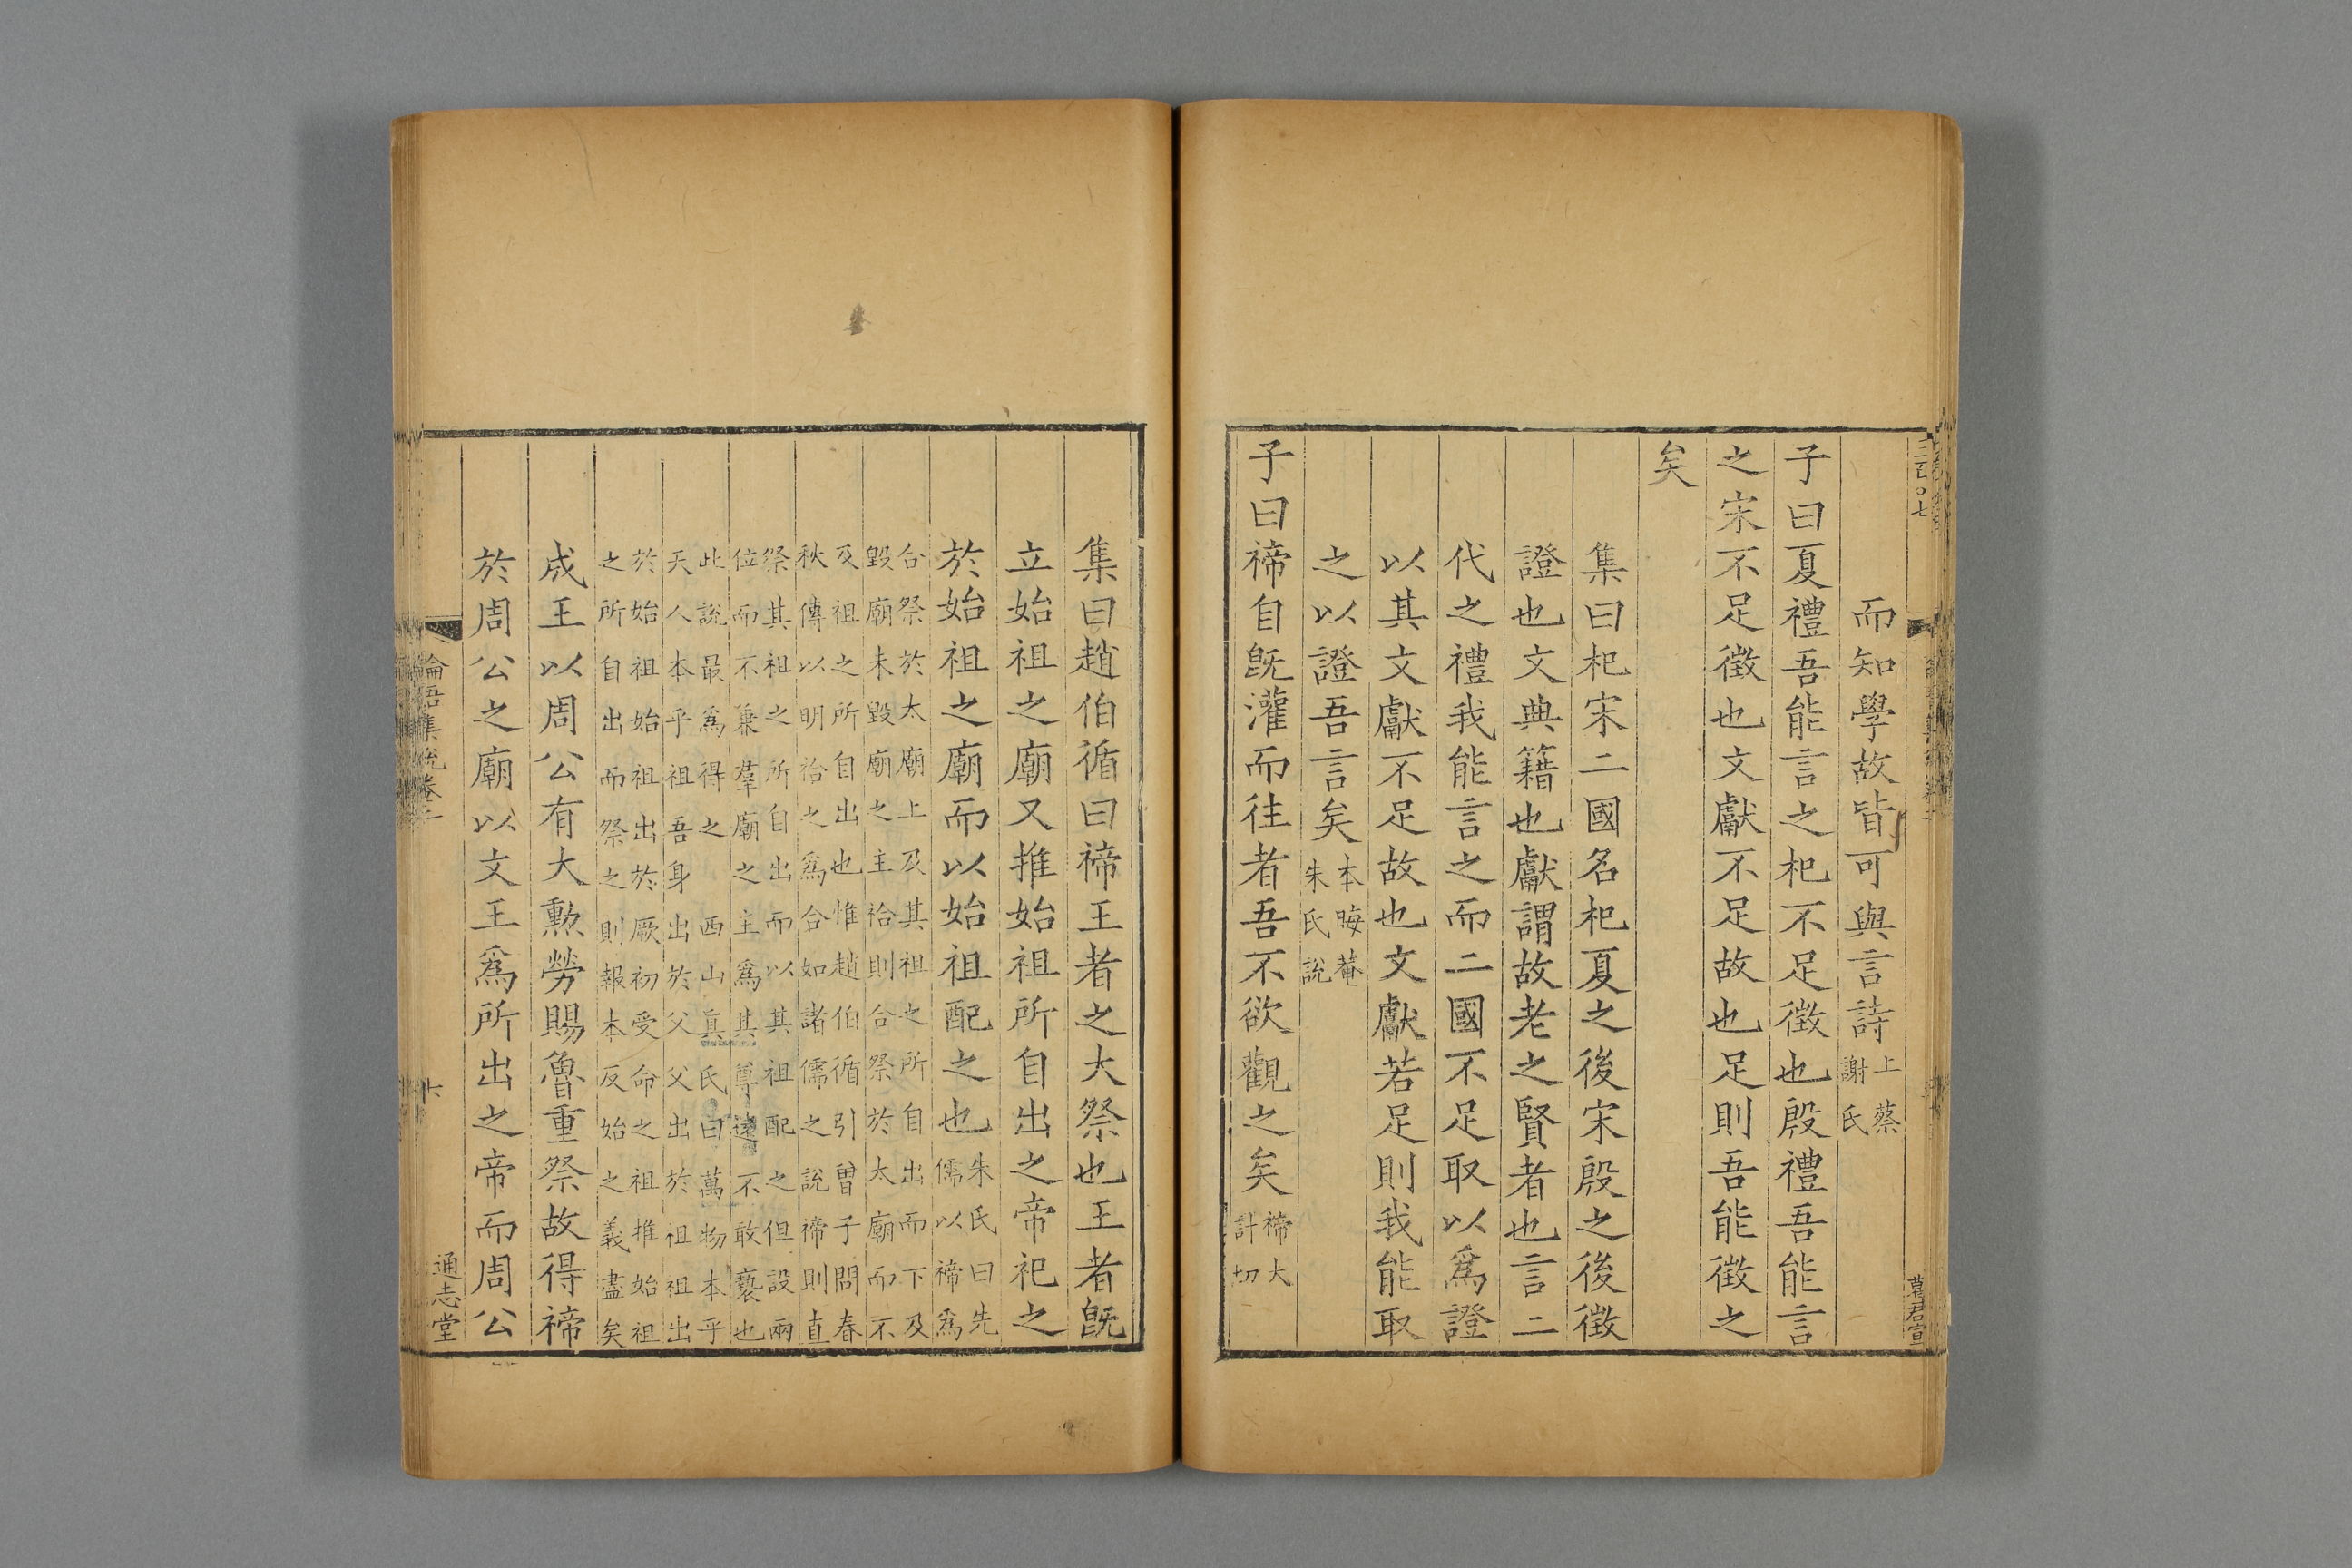 三百〇七
而知學故皆可與言詩上蔡
謝氏
子曰夏禮吾能言之杞不足徵也殷禮吾能言
之宋不足徵也文獻不足故也足則吾能徵之
矣
集曰杞宋二國名杞夏之後宋殷之後徵
證也文典籍也獻謂故老之賢者也言二
代之禮我能言之而二國不足取以爲證
以其文獻不足故也文獻若足則我能取
之以證吾言矣本晦菴
朱氏說
子曰禘自旣灌而往者吾不欲觀之矣禘大
計切
集曰趙伯循曰禘王者之大祭也王者旣
立始祖之廟又推始祖所自出之帝祀之
於始祖之廟而以始祖配之也朱氏曰先
儒以禘爲
合祭於太廟上及其祖之所自出而下及
毀廟未毀廟之主祫則合祭於太廟而不
及祖之所自出也惟趙伯循引曾子問春
秋傳以明祫之爲合如諸儒之說禘則直
祭其祖之所自出而以其祖配之但設兩
位而不兼羣廟之主爲其尊遠不敢褻也
此說最爲得之 西山眞氏曰萬物本乎
天人本乎祖吾身出於父父出於祖祖出
於始祖始祖出於厥初受命之祖推始祖
之所自出而祭之則報本反始之義盡矣
成王以周公有大勲勞賜魯重祭故得禘
於周公之廟以文王爲所出之帝而周公
論語集說卷二
六
通志堂